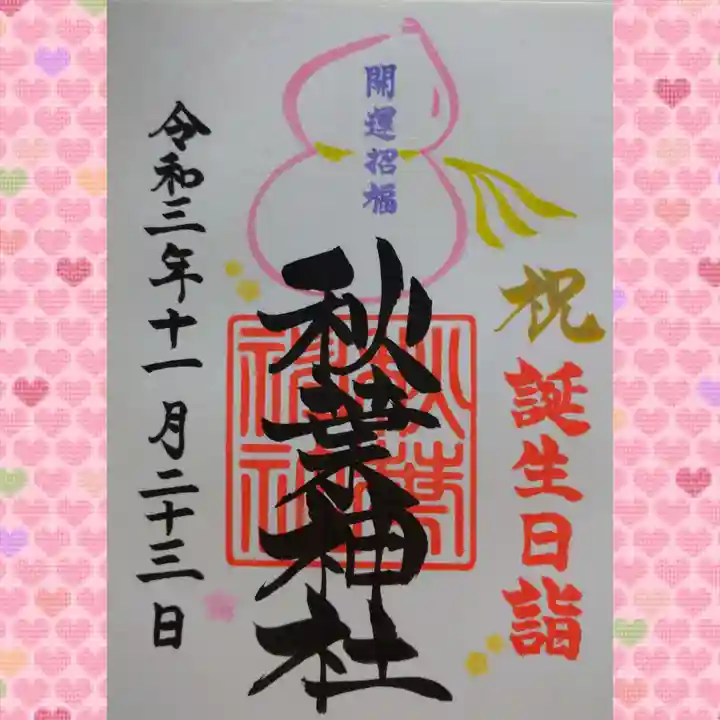 祝
誕生日詣
開運招福
秋葉神社
秋葉
神社
令和三年十一月二十三日